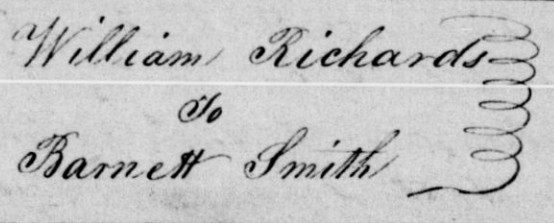 William Richards
To
Barnett Smith